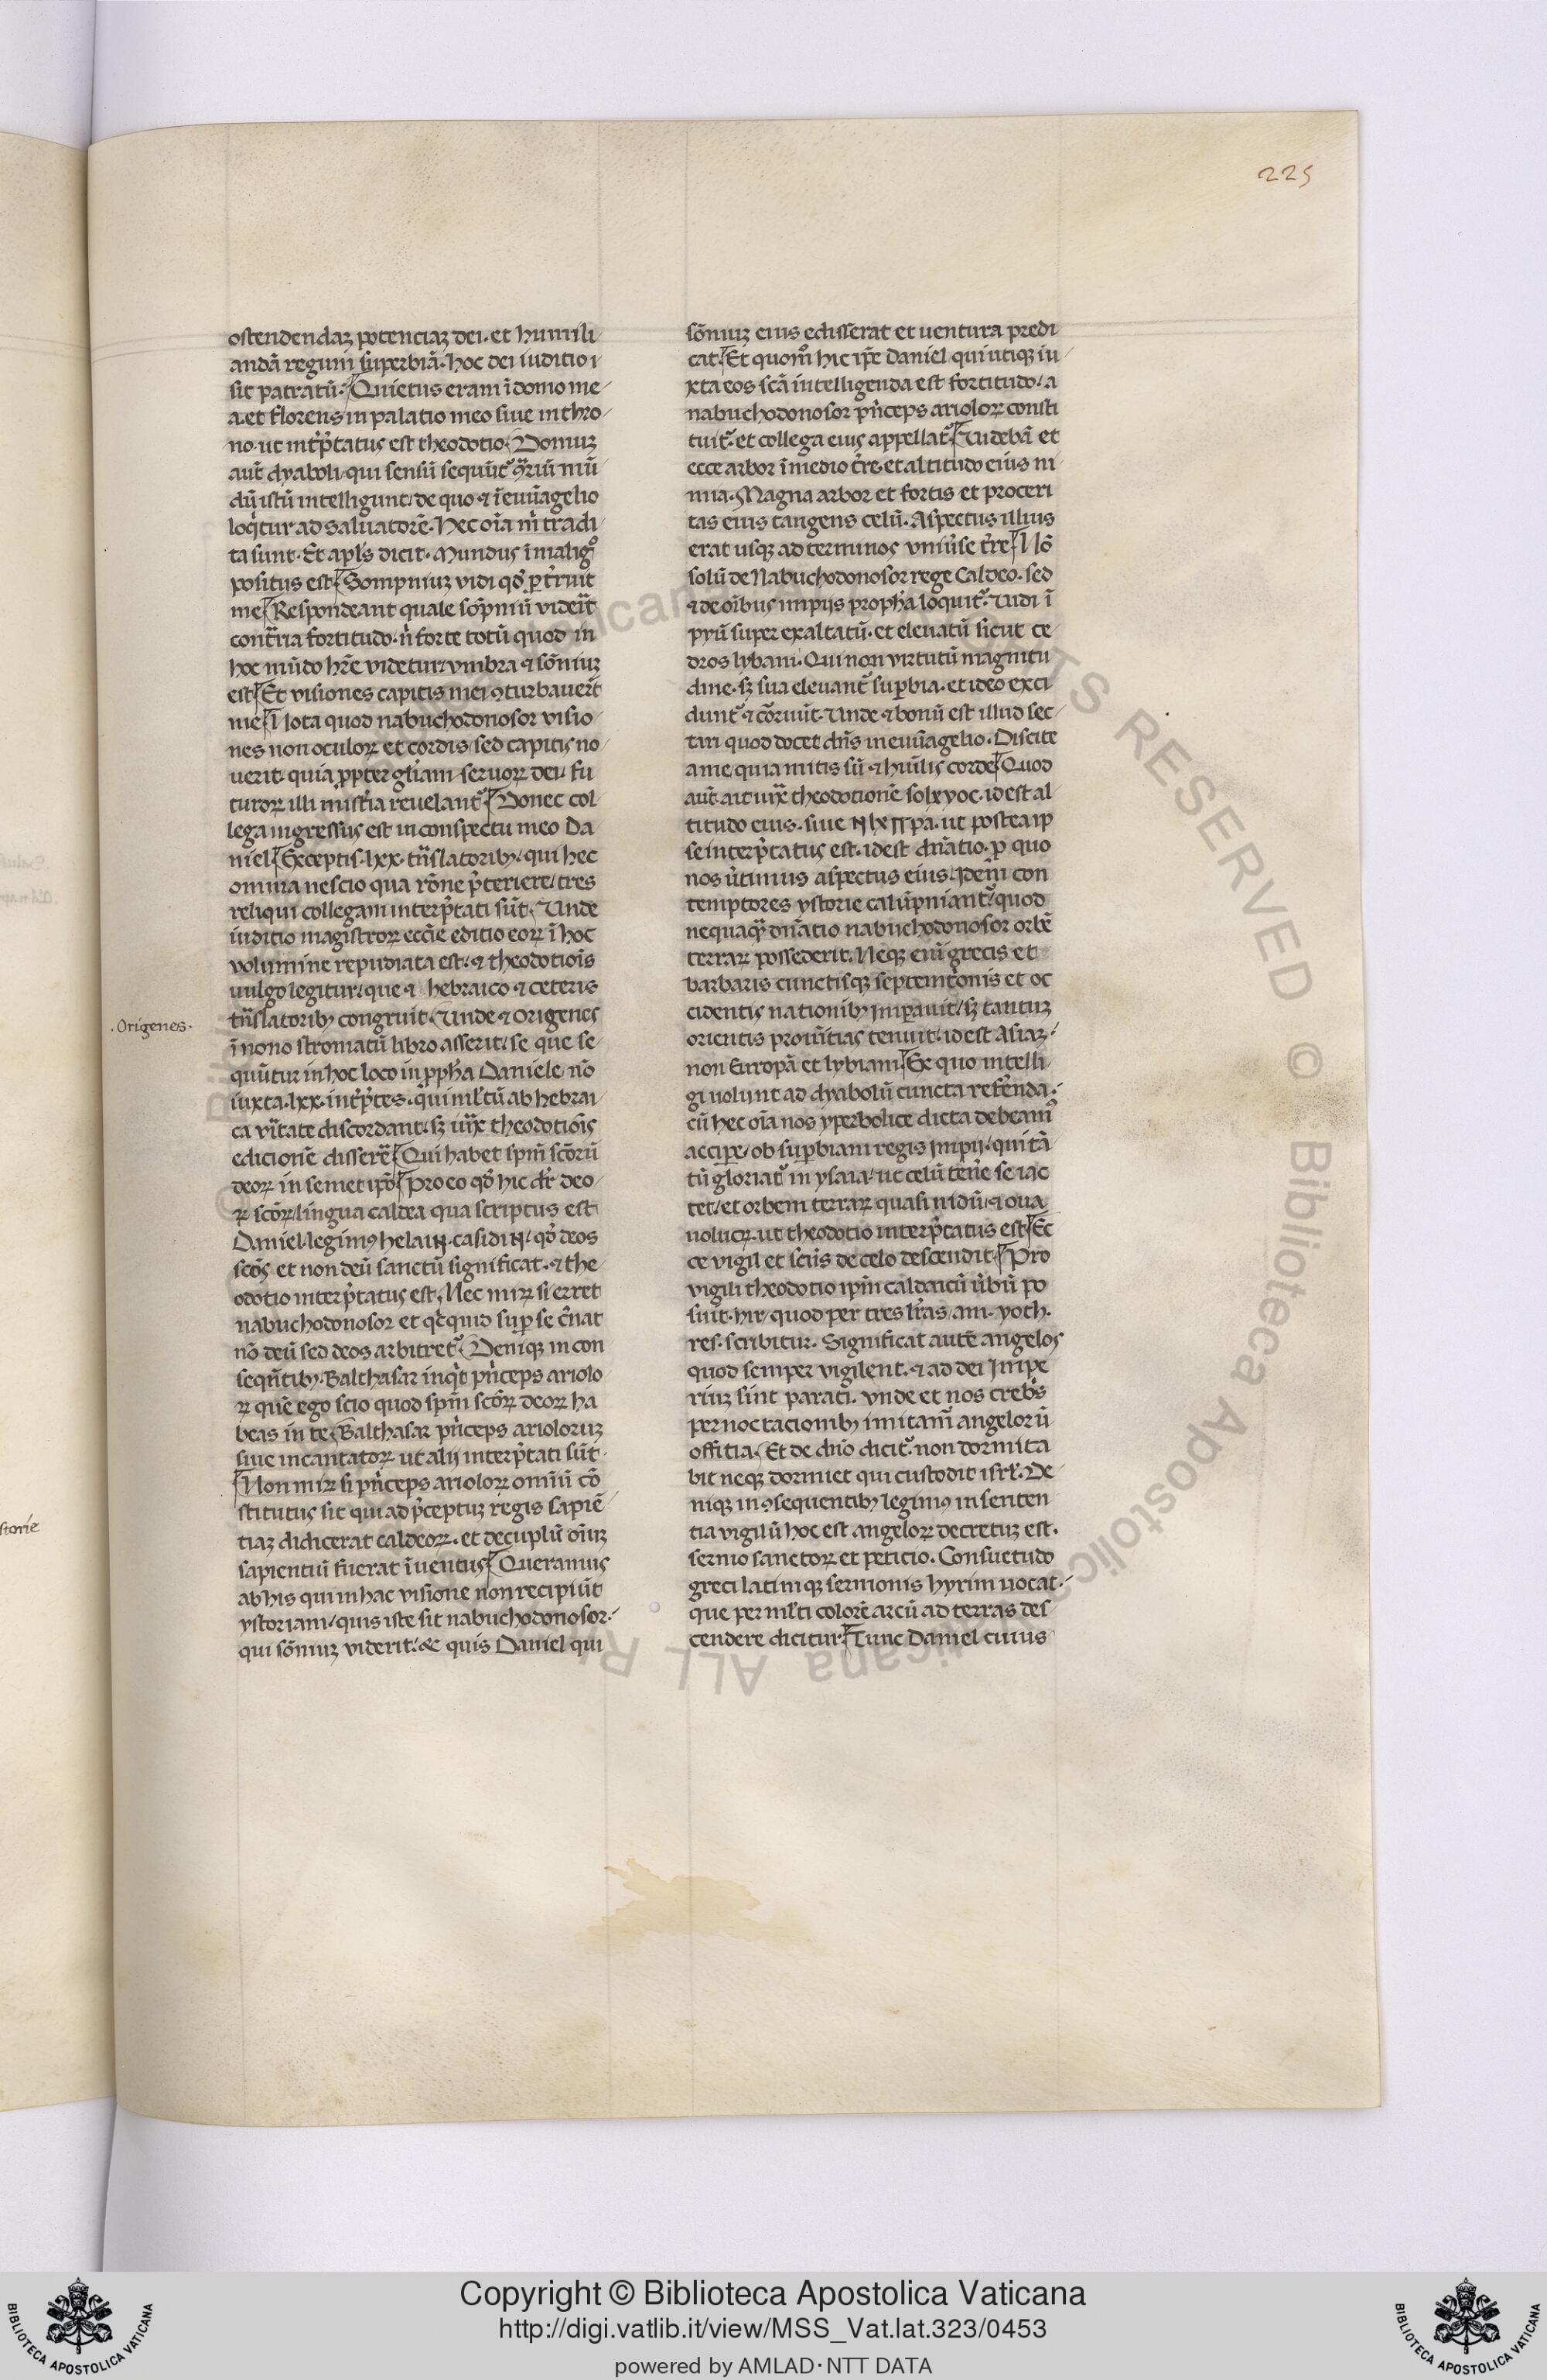 225
ostendendaʒ potenciaʒ dei. et humili
andā regum suꝑerbiā. hoc dei iuditio i
sit patratū. Quietus eram ī domo me
a. et florens in palatio meo siue in thro
no. ut int̄p̄tatus est theodotio. Domuʒ
aut̄ dyaboli. qui sensū sequūt᷑
dū istū intelligunt. de quo ⁊ ī euuāgelio
loqͥtur ad saluatorē. Hec oīa m̄ tradi
ta sunt. Et apl̄s dicit. Mundus ī malig͛o
positus est. Sompniuʒ vidi qd̄ ꝑt̄ruit
me. Respondeant quale sōpniū videīt
cont̄ria fortitudo. n̄ forte totū quod in
hoc mūdo hr̄e videtur. vmbra ⁊ sōniuʒ
est. Et visiones capitis mei ꝯturbauer̄t
me. Nota quod nabuchodonosor visio
nes non oculoꝝ et cordis. sed capitis no
uerit. quia ꝓpter gl̄iam seruoꝝ dei. fu
turoꝝ illi mist̄ia reuelant᷑. Donec col
lega ingressus est in conspectu meo Da
niel. Exceptis .lxx. tn̄slatoribꝰ. qui hec
omnia nescio qua rōne p̄teriere. tres
reliqui collegam interp̄tati sūt. Unde
iuditio magistroꝝ eccīe editio eoꝝ ī hoc
volumine repudiata est. ⁊ theodotiōis
uulgo legitur. que ⁊ hebraico ⁊ ceteris
tn̄slatoribꝰ congruit. Unde ⁊ Origenes
.Origenes.
ī nono stromatū libro asserit. se que se
quūtur in hoc loco in ꝓph̄a Daniele. nō
iuxta .lxx. int̄p̄tes. qui ml̄tū ab hebrai
ca vītate discordant. sʒ iux̄ theodotiōis
edicionē disserē. Qui habet spm̄ scōrū
deoꝝ in semet ip̄o. Pro eo qd̄ hic dr̄ deo
ꝝ scōꝝ. lingua caldea qua scriptus est
Daniel. legimꝰ helain. casidin. qd̄ deos
scōs et non deū sanctū significat. ⁊ the
odotio interp̄tatus est. Nec miꝝ si erret
nabuchodonosor et qͥcquid suꝑ se c̄nat
nō deū sed deos arbitret᷑. Deniqꝫ in con
seqūtibꝰ. Balthasar inqͥt pͥnceps ariolo
ꝝ quē ego scio quod spm̄ scōꝝ deoꝝ ha
beas in te. Balthasar pͥnceps arioloruʒ
siue incantatoꝝ ut alij interp̄tati sūt.
Non miꝝ si pͥnceps arioloꝝ omīū cō
stitutus sit qui ad p̄ceptuʒ regis sapiē
tiaʒ didicerat caldeoꝝ. et decuplū oīuʒ
sapientū fuerat īuentus. Queramus
ab his qui in hac visione non recipiūt
ystoriam. quis iste sit nabuchodonosor.
qui sōniuʒ viderit. & quis Daniel qui
storie
sōniuʒ eius edisserat et uentura predi
cat. Et quom̊ hic ip̄e Daniel qui utiqꝫ iu
xta eos scā intelligenda est fortitudo. a
nabuchodonosor pͥnceps arioloꝝ consti
tuit᷑. et collega eius appellat᷑. Uidebā et
ecce arbor ī medio t̄re. et altitudo eius ni
mia. Magna arbor et fortis et proceri
tas eius tangens celū. Aspectus illius
erat usqꝫ ad terminos vniūse t̄re. Nō
solū de Nabuchodonosor rege Caldeo. sed
⁊ de oībus impijs proph̄a loquit᷑. Uidi ī
pyū super exaltatū. et eleuatū sicut ce
dros lybani. Qui non virtutū magnitu
dine. sʒ sua eleuant᷑ suꝑbia. et ideo exci
dunt᷑ ⁊ cōruūt. Unde ⁊ bonū est illud sec
tari quod docet dn̄s in euuāgelio. Discite
a me quia mitis sū ⁊ hūilis corde. Quod
aut̄ ait iux̄ theodotionē solxyoc. id est al
titudo eius. siue ut postea ip
se interp̄tatus est. id est dn̄atio. ꝓ quo
nos ūtimus aspectus eius. Idem con
temptores ystorie calūpniant᷑. quod
nequaqͣꝫ dn̄atio nabuchodonosor orbē
terraꝝ possederit. Neqꝫ enī grecis et
barbaris cunctisqꝫ septemt̄onis et oc
cidentis nationibꝰ imꝑauit. sʒ tantuʒ
orientis prouītias tenuit. id est Asiaʒ.
non Europā et lybiam. Ex quo intelli
gi uolunt ad dyabolū cuncta refēnda.
cū hec oīa nos yperbolice dicta debeam᷒
acciꝑe. ob suꝑbiam regis impij. qui tā
tū gloriat᷑ in ysaia. ut celū ten̄e se iac
tet. et orbem terraꝝ quasi nidū ⁊ oua
uolucꝝ. ut theodotio interp̄tatus est. Ec
ce vigil et scūs de celo descendit. Pro
vigili theodotio ip̄m caldaicū ūbū po
suit. hir. quod per tres lr̄as. ain. yoth.
res. scribitur. Significat autē angelos
quod semper vigilent. ⁊ ad dei impe
riuʒ sint parati. vnde et nos crebis
pernoctacionibꝰ imitam᷒ angelorū
offitia. Et de dn̄o dicit᷑. non dormita
bit neqꝫ dormiet qui custodit isrl̄. De
niqꝫ in ꝯsequentibꝰ legimꝰ in senten
tia vigilū hoc est angeloꝝ decretuʒ est.
sermo sanctoꝝ et peticio. Consuetudo
greci latiniqꝫ sermonis hyrim uocat.
que per ml̄ti colorē arcū ad terras des
cendere dicitur. Tunc Daniel cuius
Copyright © Biblioteca Apostolica Vaticana
http://digi.vatlib.it/view/MSS_Vat.lat.323/0453
powered by AMLAD·NTT DATA
BIBLIOTECA APOSTOLICA VATICANA
BIBLIOTECA APOSTOLICA VATICANA